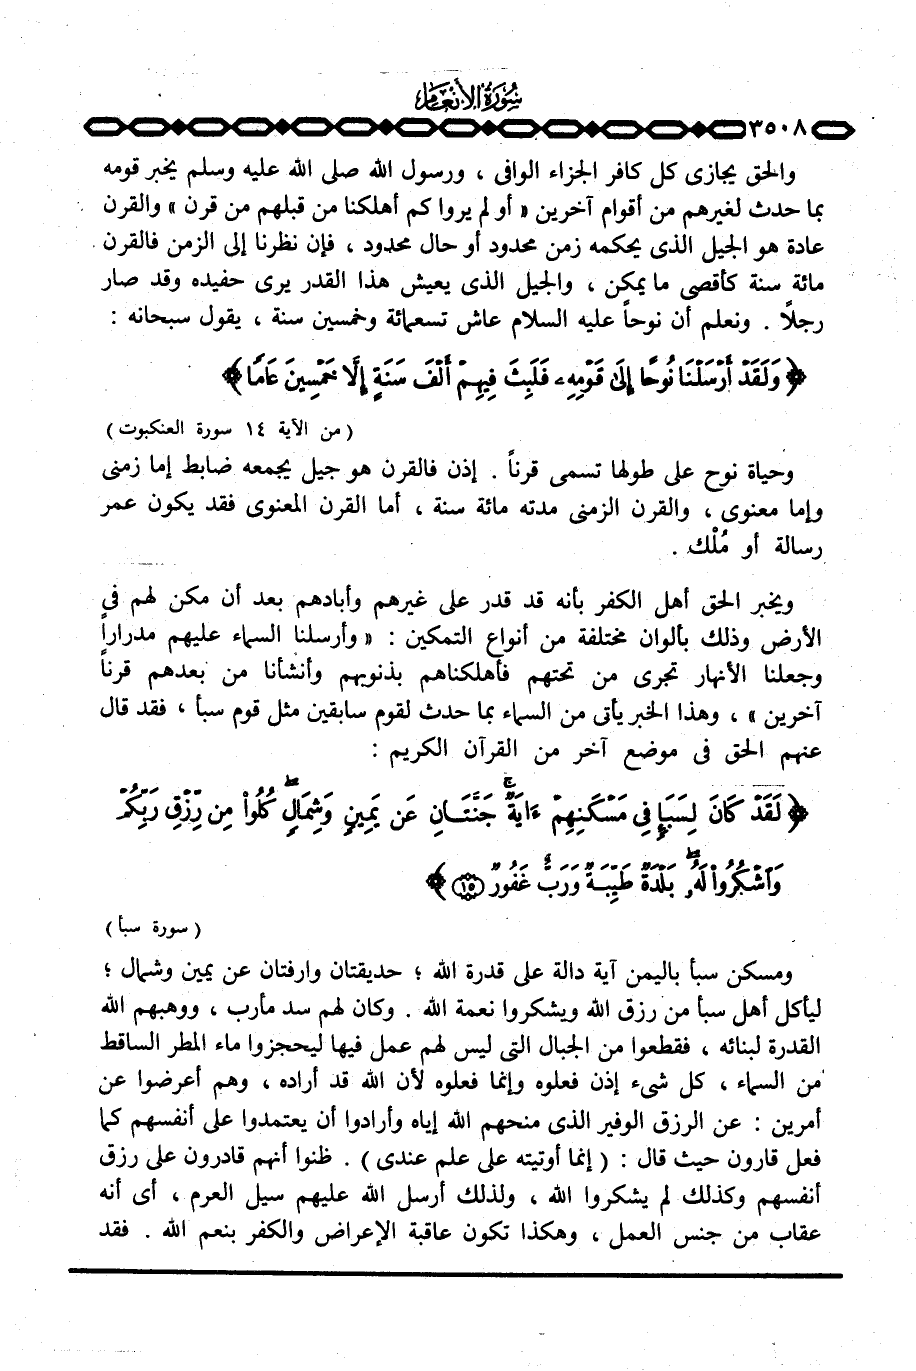 سورة الأنعام
٣٥٠٨
والحق يجازى كل كافر الجزاء الوافى ، ورسول الله صلى الله عليه وسلم يخبر قومه
بما حدث لغيرهم من أقوام آخرين « أو لم يروا كم أهلكنا من قبلهم من قرن » والقرن
عادة هو الجيل الذى يحكمه زمن محدود أو حال محدود ، فإن نظرنا إلى الزمن فالقرن
مائة سنة كأقصى ما يمكن ، والجيل الذى يعيش هذا القدر يرى حفيده وقد صار
رجلاً . ونعلم أن نوحاً عليه السلام عاش تسعمائة وخمسين سنة ، يقول سبحانه :
﴿ وَلَقَدْ أَرْسَلْنَا نُوحًا إِلَىٰ قَوْمِهِۦ فَلَبِثَ فِيهِمْ أَلْفَ سَنَةٍ إِلَّا خَمْسِينَ عَامًا ﴾
( من الآية ١٤ سورة العنكبوت )
وحياة نوح على طولها تسمى قرناً . إذن فالقرن هو جيل يجمعه ضابط إما زمنى
وإما معنوى ، والقرن الزمنى مدته مائة سنة ، أما القرن المعنوى فقد يكون عمر
رسالة أو مُلْك .
ويخبر الحق أهل الكفر بأنه قد قدر على غيرهم وأبادهم بعد أن مكن لهم فى
الأرض وذلك بألوان مختلفة من أنواع التمكين : « وأرسلنا السماء عليهم مدراراً
وجعلنا الأنهار تجرى من تحتهم فأهلكناهم بذنوبهم وأنشأنا من بعدهم قرناً
آخرين » ، وهذا الخبر يأتى من السماء بما حدث لقوم سابقين مثل قوم سبأ ، فقد قال
عنهم الحق فى موضع آخر من القرآن الكريم :
﴿ لَقَدْ كَانَ لِسَبَإٍ فِى مَسْكَنِهِمْ ءَايَةٌ ۖ جَنَّتَانِ عَن يَمِينٍ وَشِمَالٍ ۖ كُلُوا۟ مِن رِّزْقِ رَبِّكُمْ
وَٱشْكُرُوا۟ لَهُۥ ۚ بَلْدَةٌ طَيِّبَةٌ وَرَبٌّ غَفُورٌ ﴿١٥﴾ ﴾
( سورة سبأ )
ومسكن سبأ باليمن آية دالة على قدرة الله ؛ حديقتان وارفتان عن يمين وشمال ؛
ليأكل أهل سبأ من رزق الله ويشكروا نعمة الله . وكان لهم سد مأرب ، ووهبهم الله
القدرة لبنائه ، فقطعوا من الجبال التى ليس لهم عمل فيها ليحجزوا ماء المطر الساقط
من السماء ، كل شىء إذن فعلوه وإنما فعلوه لأن الله قد أراده ، وهم أعرضوا عن
أمرين : عن الرزق الوفير الذى منحهم الله إياه وأرادوا أن يعتمدوا على أنفسهم كما
فعل قارون حيث قال : ( إنما أوتيته على علم عندى ) . ظنوا أنهم قادرون على رزق
أنفسهم وكذلك لم يشكروا الله ، ولذلك أرسل الله عليهم سيل العرم ، أى أنه
عقاب من جنس العمل ، وهكذا تكون عاقبة الإعراض والكفر بنعم الله . فقد